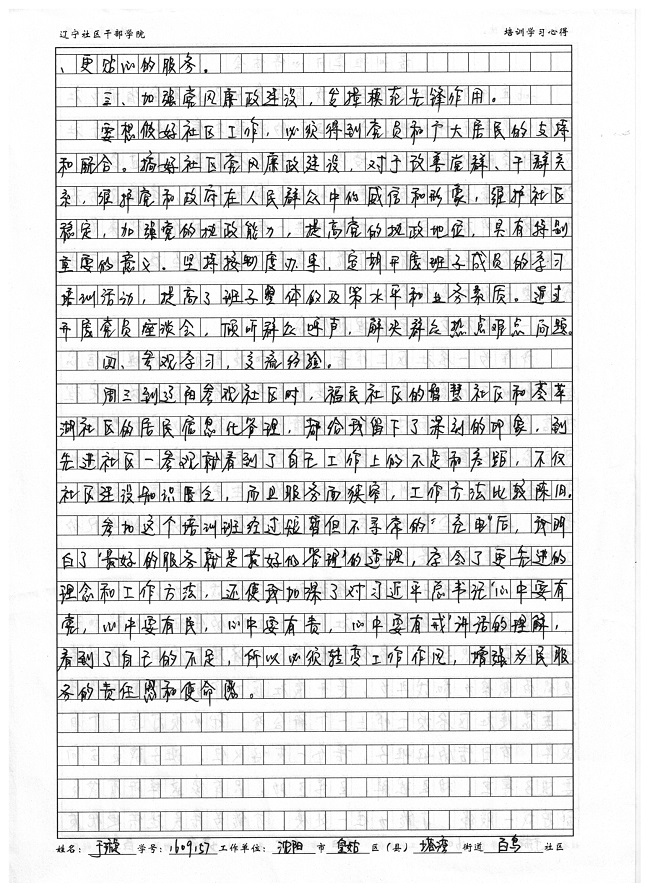 辽宁社区干部学院 培训学习心得
、更贴心的服务。
三、加强党风廉政建设，发挥模范先锋作用。
要想做好社区工作，必须得到党员和广大居民的支持
和配合。搞好社区党风廉政建设，对于改善党群、干群关
系，维护党和政府在人民群众中的威信和形象，维护社区
稳定，加强党的执政能力，提高党的执政地位，具有特别
重要的意义。坚持按制度办事，定期开展班子成员的学习
培训活动，提高了班子整体的政策水平和业务素质。通过
开展党员座谈会，倾听群众呼声，解决群众热点难点问题。
四、参观学习，交流经验。
周三到辽阳参观社区时，福民社区的智慧社区和荟萃
湖社区的居民信息化管理，都给我留下了深刻的印象，到
先进社区一参观就看到了自己工作上的不足和差距，不仅
社区建设知识匮乏，而且服务面狭窄，工作方法比较陈旧。
参加这个培训班经过短暂但不寻常的“充电”后，我明
白了“最好的服务就是最好的管理”的道理，学会了更先进的
理念和工作方法，还使我加深了对习近平总书记“心中要有
党，心中要有民，心中要有责，心中要有戒”讲话的理解，
看到了自己的不足，所以必须转变工作作风，增强为民服
务的责任感和使命感。
姓名：于璇 学号：1609157 工作单位：沈阳 市 皇姑 区（县）塔湾 街道 百鸟 社区